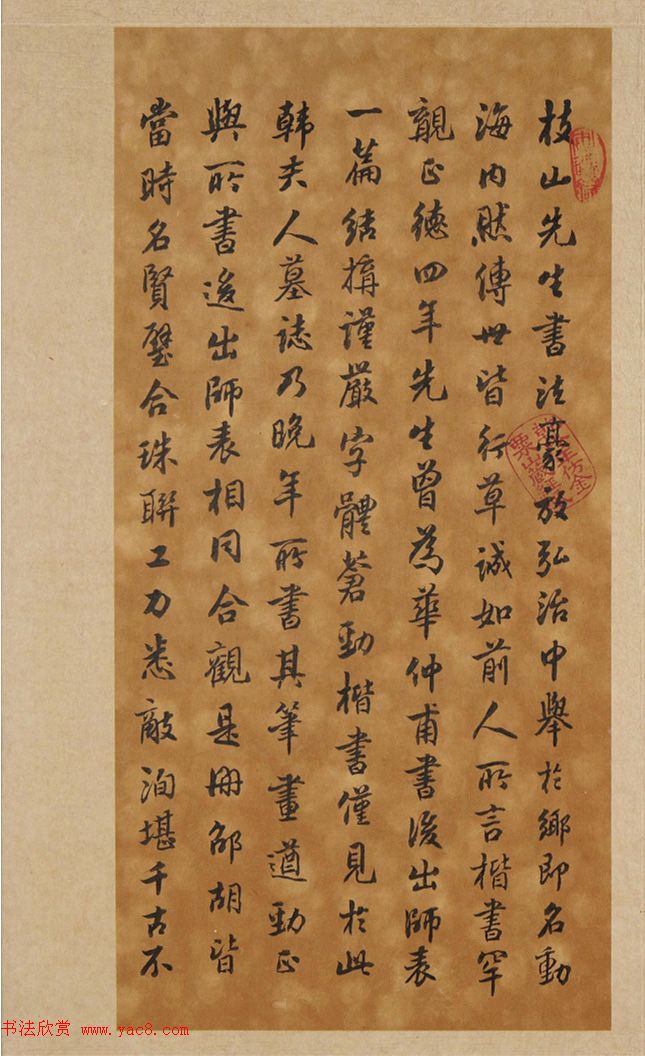 枝山先生書法豪放弘治中舉於鄉即名動
海內然傳世皆行草誠如前人所言楷書罕
覯正德四年先生曾為華仲甫書後出師表
一篇結構謹嚴字體蒼勁楷書僅見於此
韓夫人墓誌乃晚年所書其筆畫遒勁正
與所書後出師表相同合觀是冊邵胡皆
當時名賢璧合珠聯工力悉敵洵堪千古不
书法欣赏 www.yac8.com